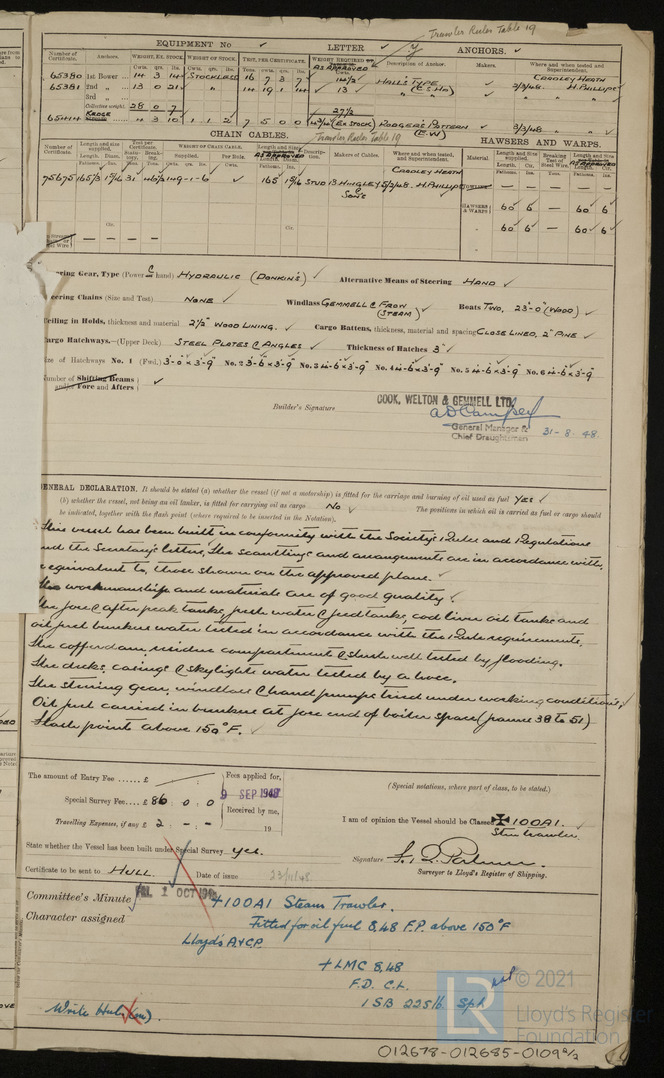 Trawler Rules Table 19
EQUIPMENT No ✓ LETTER ✓ y ANCHORS. ✓
Number of Certificate. Anchors. WEIGHT, EX. STOCK WEIGHT OF STOCK. TEST, PER CERTIFICATE. WEIGHT REQUIRED AS APPROVED Makers. Where and when tested and Superintendent.
65380 1st Bower 14 3 14 STOCKLESS 16 7 3 7 14½ HALL'S TYPE CRADLEY HEATH
65381 2nd „ 13 0 21 „ 14 19 1 14 13 (C.S. HD) 2/3/48. H. PHILLIPS
3rd „
Collective weight. 28 0 7 27½
65414 KEDGE 4 3 10 1 1 2 7 5 0 0 4¾ (EX STOCK) RODGER'S PATTERN 3/3/48. „
CHAIN CABLES. Trawler Rules Table 19 HAWSERS AND WARPS.
Number of Certificate. Length and size supplied. Test per Certificate WEIGHT OF CHAIN CABLE. Length and Size AS APPROVED Description. Makers of Cables. Where and when tested, and Superintendent. Material Length and Size supplied. Breaking Test of Steel Wire. Length and Size AS APPROVED
CRADLEY HEATH
75675 165/3 1 5/16 31 46½ 149-1-6 ✓ 165 1 5/16 STUD B. HINGLEY 5/2/48. H. PHILLIPS
SONS
HAWSERS & WARPS 60 6 — 60 6
60 6 — 60 6
Steering Gear, Type (Power & hand) HYDRAULIC (DONKIN'S) ✓ Alternative Means of Steering HAND ✓
Steering Chains (Size and Test) NONE ✓ Windlass GEMMELL & FROW (STEAM) ✓ Boats TWO, 23'-0" (WOOD) ✓
Ceiling in Holds, thickness and material 2½" WOOD LINING. ✓ Cargo Battens, thickness, material and spacing CLOSE LINED, 2" PINE ✓
Cargo Hatchways.—(Upper Deck) STEEL PLATES & ANGLES ✓ Thickness of Hatches 3" ✓
Size of Hatchways No. 1 (Fwd.) 3'-0" x 3'-9" No. 2 3'-6 x 3'-9" No. 3 4'-6 x 3'-9" No. 4 4'-6 x 3'-9" No. 5 4'-6 x 3'-9" No. 6 4'-6 x 3'-9"
Number of Shifting Beams and/or Fore and Afters ✓
Builder's Signature COOK, WELTON & GEMMELL LTD.
General Manager &
Chief Draughtsman 31-8-48.
GENERAL DECLARATION. It should be stated (a) whether the vessel (if not a motorship) is fitted for the carriage and burning of oil used as fuel YES ✓
(b) whether the vessel, not being an oil tanker, is fitted for carrying oil as cargo No ✓ The positions in which oil is carried as fuel or cargo should
be indicated, together with the flash point (where required to be inserted in the Notation).
This vessel has been built in conformity with the Society's Rules and Regulations
and the Secretary's letters, The scantlings and arrangements are in accordance with,
equivalent to, those shown on the approved plans. ✓
The workmanship and materials are of good quality ✓
The fore & after peak tanks, fresh water & feed tanks, cod liver oil tanks and
oil fuel bunkers water tested in accordance with the Rule requirements,
The cofferdam, residue compartment & slush well tested by flooding.
The decks, casings & skylights water tested by a hose.
The steering gear, windlass & hand pumps tried under working conditions,
Oil fuel carried in bunkers at fore end of boiler space (frames 38 to 51)
Flash point above 150°F. ✓
The amount of Entry Fee ...... £ Fees applied for,
9 SEP 1948
Special Survey Fee .... £ 86 : 0 : 0 Received by me,
Travelling Expenses, if any £ 2 : - : - 19
(Special notations, where part of class, to be stated.)
I am of opinion the Vessel should be Classed ✠ 100A1. Steam Trawler
State whether the Vessel has been built under Special Survey Yes.
Signature
Surveyor to Lloyd's Register of Shipping.
Certificate to be sent to HULL. Date of issue 23/11/48
Committee's Minute FRI. 1 OCT 1948
Character assigned +100A1 Steam Trawler.
Fitted for oil fuel 8,48 F.P. above 150°F
Lloyd's A&CP
+LMC 8,48
F.D. C.L.
1 SB 225 lb Spt
Write Hull
© 2021
LR
Lloyd's Register
Foundation
012678-012685-0109 2/2